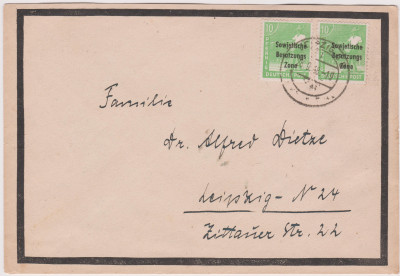 10 10
Sowjetische Sowjetische
Besatzungs Besatzungs
Zone Zone
DEUTSCHE POST
Familie
Dr. Alfred Dietze
Leipzig - N 24
Zittauer Str. 22